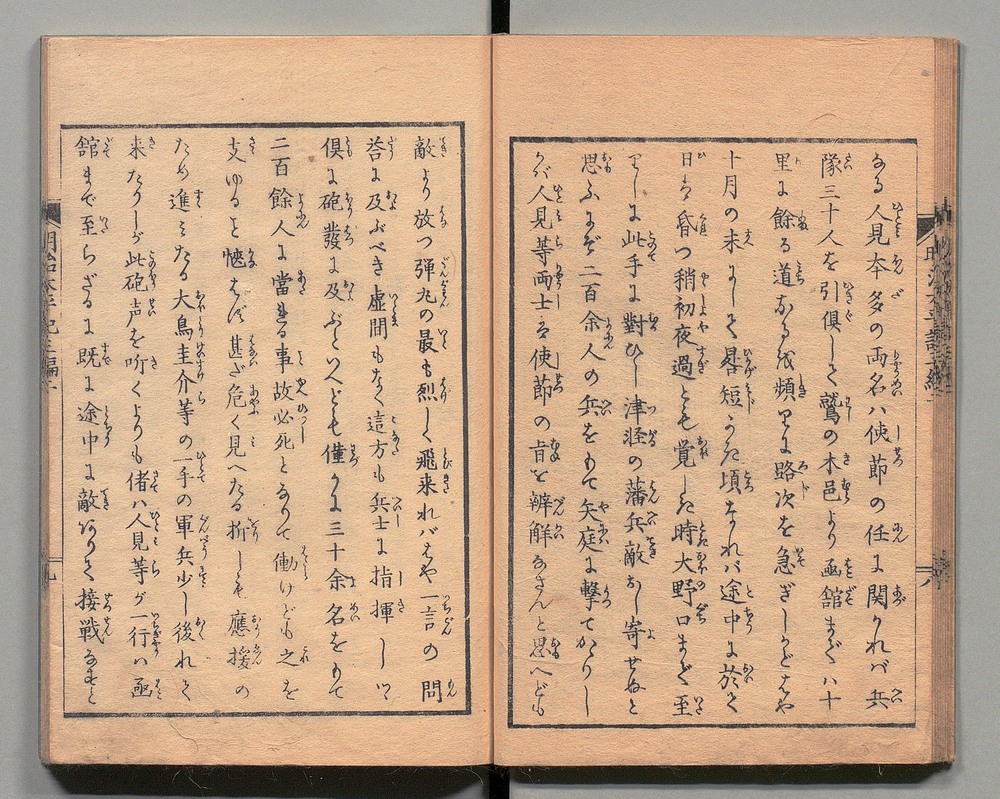 なる人見本多の両名ハ使節の任に関かれバ兵
隊三十人を引倶して鷲の木邑より函舘まで八十
里に餘る道なるを頻りに路次を急ぎしかどはや
十月の末にして晷短かき頃なれバ途中に於て
日は昏つ稍初夜過とも覚しき時大野口まで至
りしに此手に對ひし津軽の藩兵敵か寄せぬと
思ふにぞ二百余人の兵をもて矢庭に撃てかゝりし
かバ人見等両士は使節の旨を辨解なさんと思へども
敵より放つ弾丸の最も烈しく飛来れバはや一言の問
答に及ぶべき虚間もなく這方も兵士に指揮しツヽ
倶に砲發に及ぶといへども僅かに三十余名をもて
二百餘人に當る事故必死となりて働けども之を
支ゆると愜はず甚ぎ危く見へたる折しも應援の
ため進ミたる大鳥圭介等の一手の軍兵少し後れて
来たりしが此砲声を听くよりも偖ハ人見等が一行ハ函
舘まで至らざるに既に途中に敵ありて接戦なすと
明治太平記三編
九
八